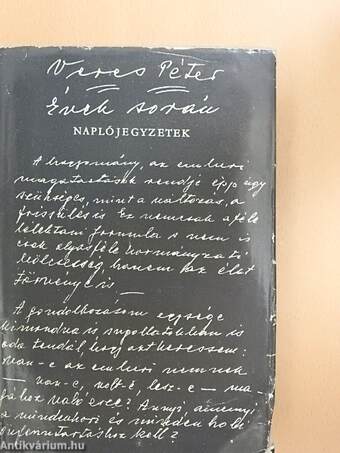 Veres Péter
Évek során
NAPLÓJEGYZETEK
A hagyomány, az emberi
magatartások rendje épp úgy
szükséges, mint a változás, a
frissülés is. Ez nemcsak afféle
lélektani formula s nem is
csak olyasféle kormányzati
bölcsesség, hanem az élet
törvénye is —
A gondolkozásom egysége
kimondva is
oda tendál, hogy azt keressem:
van-e az emberi nemnek
— van-e, volt-e, lesz-e — ma-
gához való esze? Annyi, amennyi
a mindenkori és minden
kell?
Antikvárium.hu